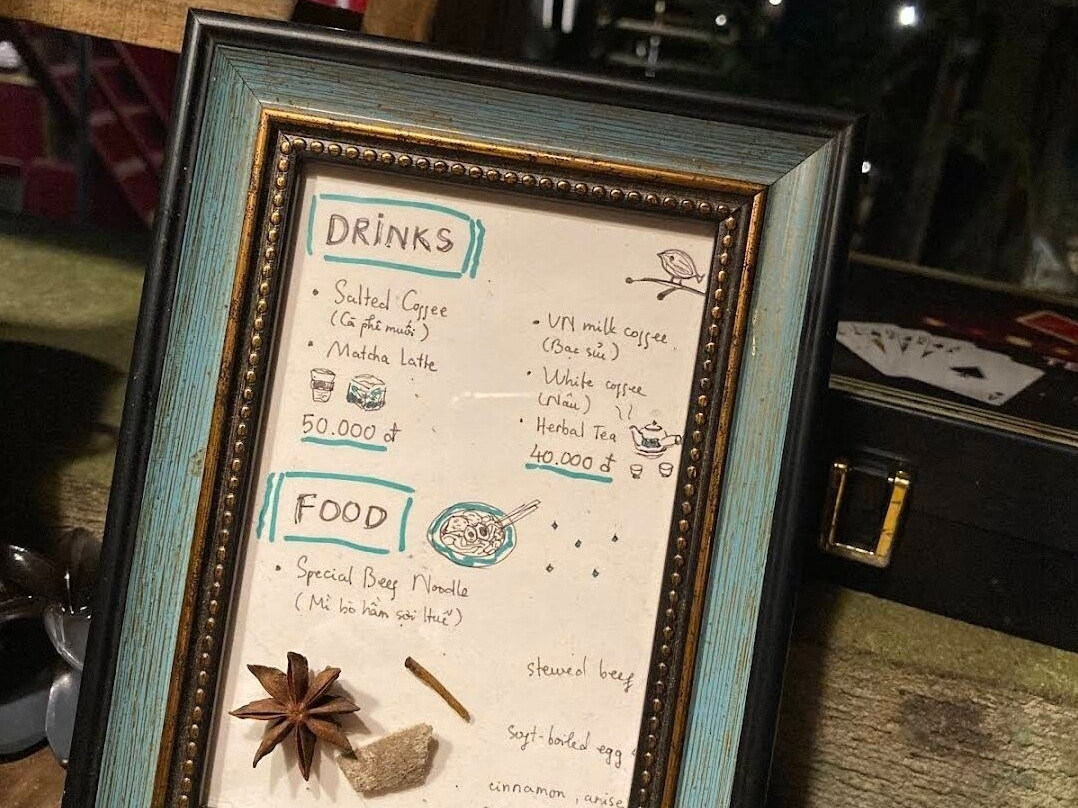 DRINKS
• Salted Coffee
(Cà phê muối)
• Matcha Latte
50.000 đ
• VN milk coffee
(Bạc sỉu)
• White coffee
(Nâu)
• Herbal Tea
40.000 đ
FOOD
• Special Beef Noodle
(Mì bò hầm sợi Huế)
stewed beef
soft-boiled egg
cinnamon, anise